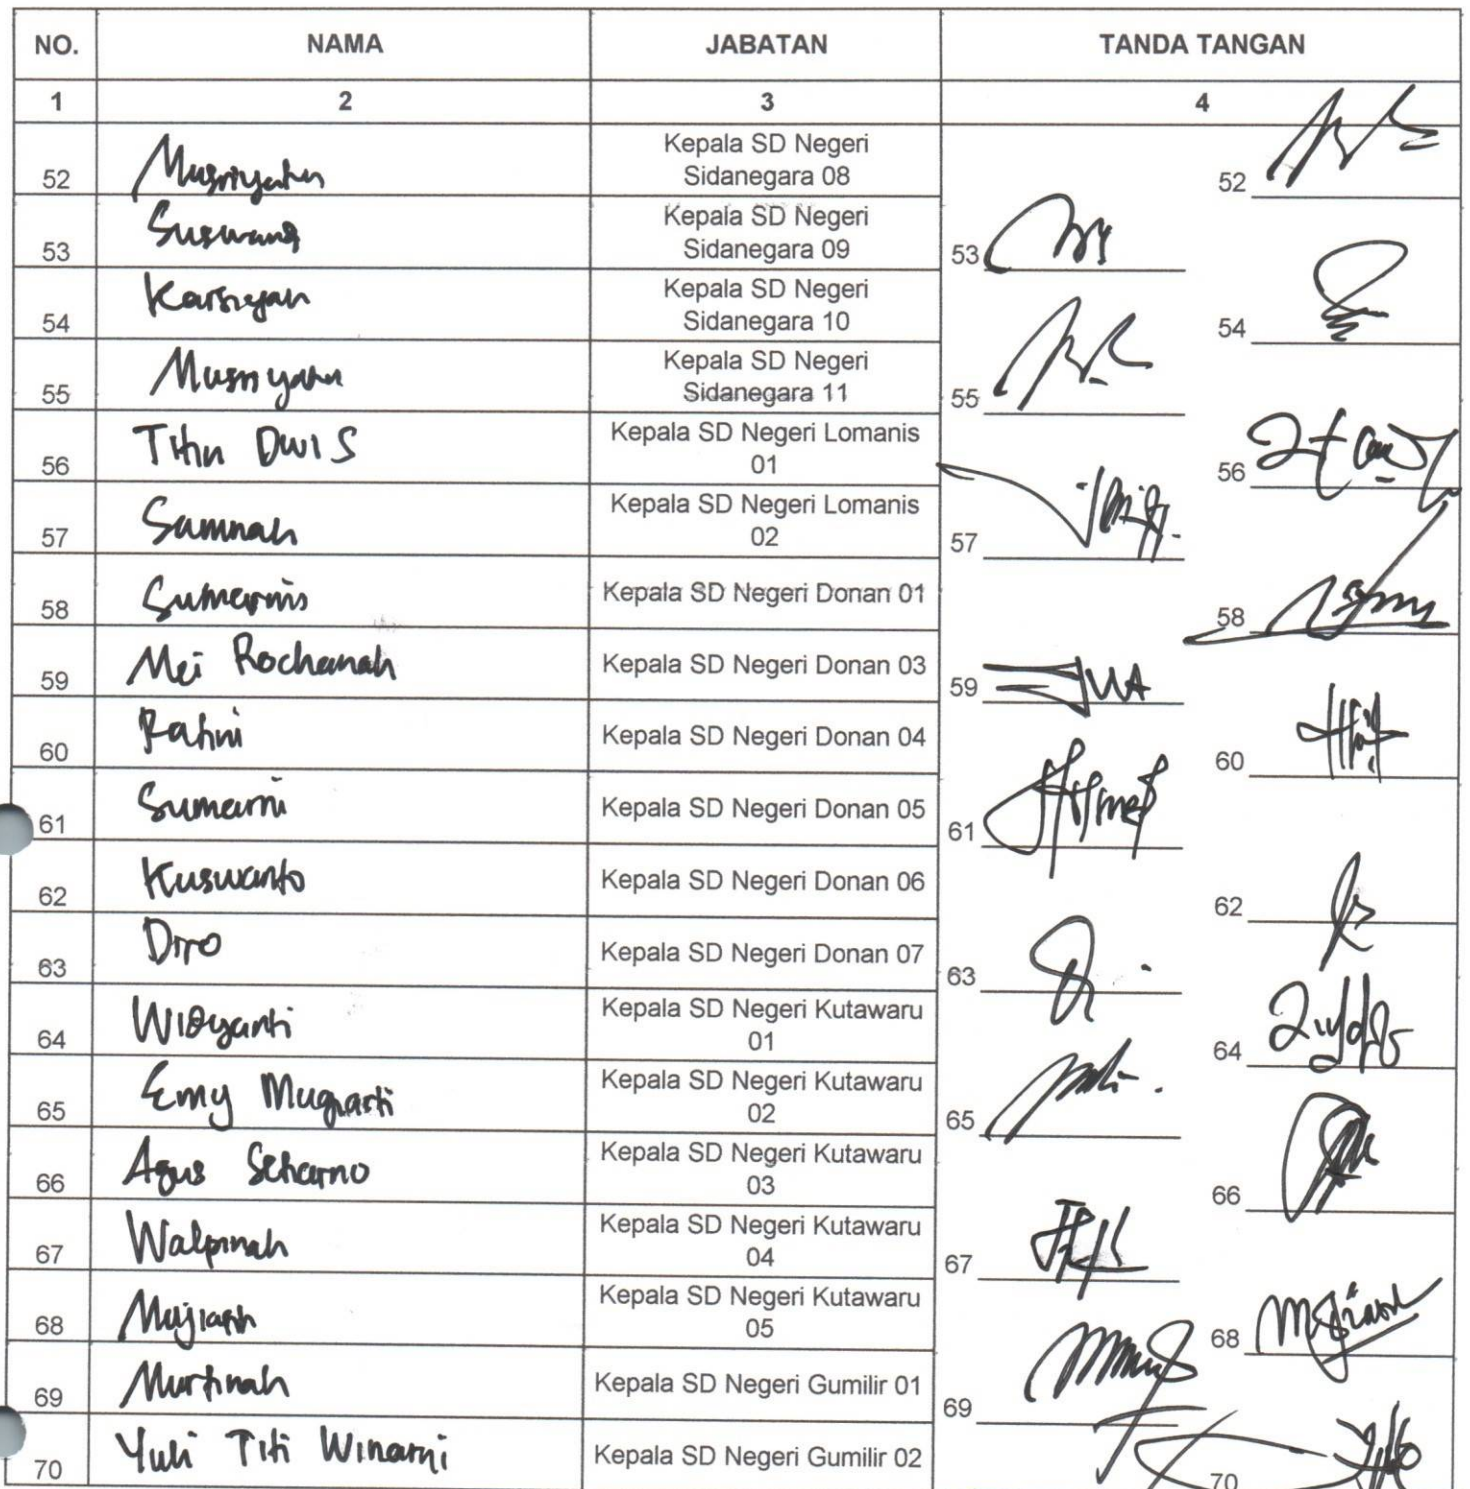 NO. NAMA JABATAN TANDA TANGAN
1 2 3 4
52 Musriyatun Kepala SD Negeri Sidanegara 08 52
53 Suswang Kepala SD Negeri Sidanegara 09 53
54 Karsiyah Kepala SD Negeri Sidanegara 10 54
55 Musriyatun Kepala SD Negeri Sidanegara 11 55
56 Titin Dwi S Kepala SD Negeri Lomanis 01 56
57 Samnah Kepala SD Negeri Lomanis 02 57
58 Kepala SD Negeri Donan 01 58
59 Mei Rochanah Kepala SD Negeri Donan 03 59
60 Ratini Kepala SD Negeri Donan 04 60
61 Sumarni Kepala SD Negeri Donan 05 61
62 Kuswanto Kepala SD Negeri Donan 06 62
63 Diro Kepala SD Negeri Donan 07 63
64 Widyanti Kepala SD Negeri Kutawaru 01 64
65 Emy Mugiarti Kepala SD Negeri Kutawaru 02 65
66 Agus Kepala SD Negeri Kutawaru 03 66
67 Walpinah Kepala SD Negeri Kutawaru 04 67
68 Mujiasih Kepala SD Negeri Kutawaru 05 68
69 Murtinah Kepala SD Negeri Gumilir 01 69
70 Yuli Titi Winarni Kepala SD Negeri Gumilir 02 70